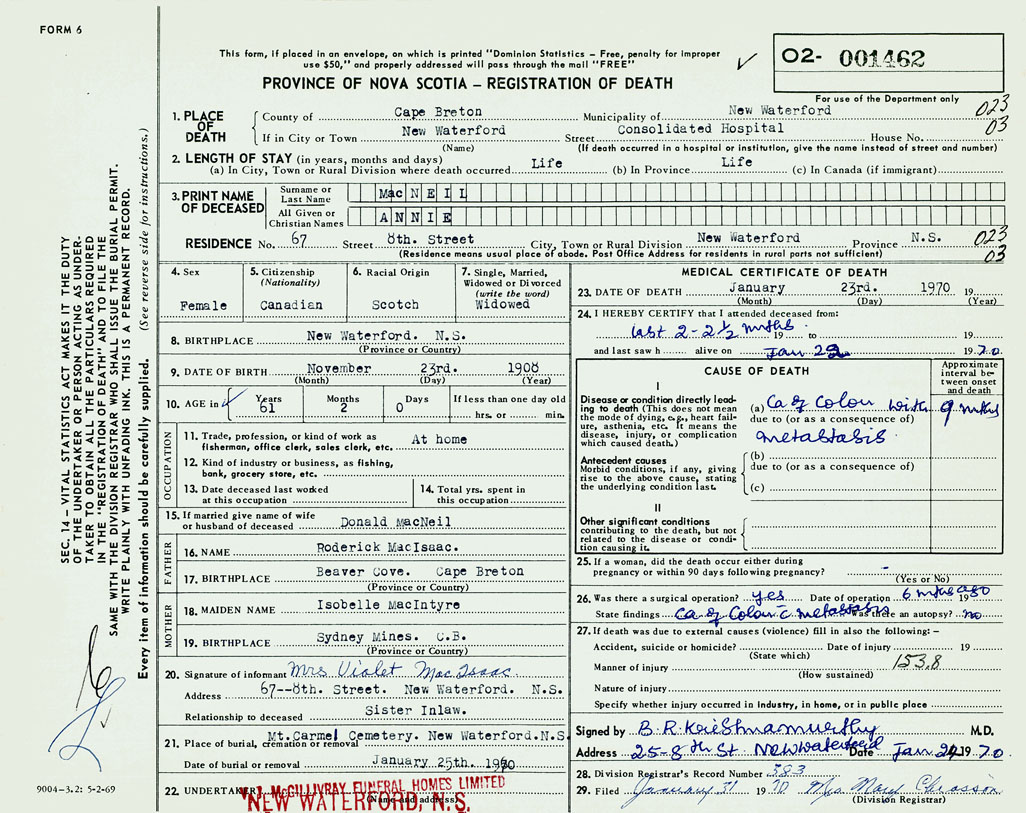 FORM 6
This form, if placed in an envelope, on which is printed "Dominion Statistics – Free, penalty for improper
use $50," and properly addressed will pass through the mail "FREE"
PROVINCE OF NOVA SCOTIA – REGISTRATION OF DEATH
02- 001462
For use of the Department only
023
03
1. PLACE OF DEATH
County of Cape Breton Municipality of New Waterford
If in City or Town New Waterford Street Consolidated Hospital House No.
(Name) (If death occurred in a hospital or institution, give the name instead of street and number)
2. LENGTH OF STAY (in years, months and days)
(a) In City, Town or Rural Division where death occurred Life (b) In Province Life (c) In Canada (if immigrant)
3. PRINT NAME OF DECEASED
Surname or Last Name MacNEIL
All Given or Christian Names ANNIE
RESIDENCE No. 67 Street 8th. Street City, Town or Rural Division New Waterford Province N.S.
023
03
(Residence means usual place of abode. Post Office Address for residents in rural parts not sufficient)
4. Sex
Female
5. Citizenship
(Nationality)
Canadian
6. Racial Origin
Scotch
7. Single, Married,
Widowed or Divorced
(write the word)
Widowed
8. BIRTHPLACE New Waterford. N.S.
(Province or Country)
9. DATE OF BIRTH November 23rd. 1908
(Month) (Day) (Year)
10. AGE in Years Months Days If less than one day old
61 2 0 hrs. or min.
OCCUPATION
11. Trade, profession, or kind of work as
fisherman, office clerk, sales clerk, etc. At home
12. Kind of industry or business, as fishing,
bank, grocery store, etc.
13. Date deceased last worked
at this occupation
14. Total yrs. spent in
this occupation
15. If married give name of wife
or husband of deceased Donald MacNeil
FATHER
16. NAME Roderick MacIsaac.
17. BIRTHPLACE Beaver Cove. Cape Breton
(Province or Country)
MOTHER
18. MAIDEN NAME Isobelle MacIntyre
19. BIRTHPLACE Sydney Mines. C.B.
(Province or Country)
20. Signature of informant Mrs Violet MacIsaac
Address 67--8th. Street. New Waterford. N.S.
Relationship to deceased Sister Inlaw.
21. Place of burial, cremation or removal Mt.Carmel Cemetery. New Waterford.N.S.
Date of burial or removal January 25th. 1970
22. UNDERTAKER McGILLIVRAY FUNERAL HOMES LIMITED
(Name and address)
NEW WATERFORD, N.S.
MEDICAL CERTIFICATE OF DEATH
23. DATE OF DEATH January 23rd. 1970 19
(Month) (Day) (Year)
24. I HEREBY CERTIFY that I attended deceased from:
last 2-2½ mths 19 to 19
and last saw h alive on Jan 22 1970
CAUSE OF DEATH
Approximate
interval be-
tween onset
and death
I
Disease or condition directly lead-
ing to death (This does not mean
the mode of dying, e.g., heart fail-
ure, asthenia, etc. It means the
disease, injury, or complication
which caused death.)
(a) Ca of Colon with 9 mths
due to (or as a consequence of)
metastasis
Antecedent causes
Morbid conditions, if any, giving
rise to the above cause, stating
the underlying condition last.
(b)
due to (or as a consequence of)
(c)
II
Other significant conditions
contributing to the death, but not
related to the disease or condi-
tion causing it.
25. If a woman, did the death occur either during
pregnancy or within 90 days following pregnancy? -
(Yes or No)
26. Was there a surgical operation? yes Date of operation 6 mths ago 19
State findings Ca of Colon c̄ metastasis Was there an autopsy? no
27. If death was due to external causes (violence) fill in also the following: –
Accident, suicide or homicide? Date of injury 19
(State which)
Manner of injury 153.8
(How sustained)
Nature of injury
Specify whether injury occurred in industry, in home, or in public place
Signed by B.R. Krishnamurthy M.D.
Address 25-8th St New Waterford Date Jan 24 1970
28. Division Registrar's Record Number 383
29. Filed January 31 1970 Mrs Mary Chiasson
(Division Registrar)
SEC. 14 – VITAL STATISTICS ACT MAKES IT THE DUTY
OF THE UNDERTAKER OR PERSON ACTING AS UNDER-
TAKER TO OBTAIN ALL THE PARTICULARS REQUIRED
IN THE "REGISTRATION OF DEATH" AND TO FILE THE
SAME WITH THE DIVISION REGISTRAR WHO SHALL ISSUE THE BURIAL PERMIT.
WRITE PLAINLY WITH UNFADING INK. THIS IS A PERMANENT RECORD.
Every item of information should be carefully supplied. (See reverse side for instructions.)
9004-3.2: 5-2-69